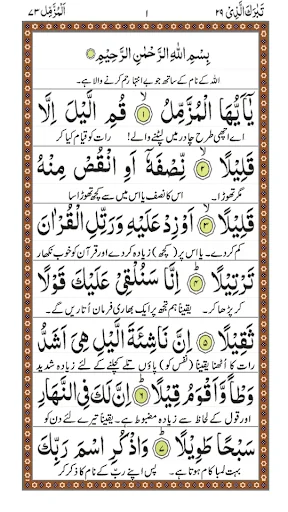 تَبٰرَكَ الَّذِیْ ٢٩ ١ اَلْمُزَّمِّل ٧٣
بِسْمِ اللهِ الرَّحْمٰنِ الرَّحِیْمِ
اللہ کے نام کے ساتھ جو بے انتہا رحم کرنے والا ہے۔
یٰۤاَیُّهَا الْمُزَّمِّلُ ۙ﴿١﴾ قُمِ الَّیْلَ اِلَّا
اے اچھی طرح چادر میں لپٹنے والے! رات کو قیام کیا کر
قَلِیْلًا ۙ﴿٢﴾ نِّصْفَهٗۤ اَوِ انْقُصْ مِنْهُ
مگر تھوڑا۔ اس کا نصف یا اس میں سے کچھ تھوڑا سا
قَلِیْلًا ۙ﴿٣﴾ اَوْ زِدْ عَلَیْهِ وَ رَتِّلِ الْقُرْاٰنَ
کم کر دے۔ یا اس پر (کچھ) زیادہ کر دے اور قرآن کو خوب نکھار
تَرْتِیْلًا ؕ﴿٤﴾ اِنَّا سَنُلْقِیْ عَلَیْكَ قَوْلًا
کر پڑھا کر۔ یقیناً ہم تجھ پر ایک بھاری فرمان اُتاریں گے۔
ثَقِیْلًا ﴿٥﴾ اِنَّ نَاشِئَةَ الَّیْلِ هِیَ اَشَدُّ
رات کا اُٹھنا یقیناً (نفس کو) پاؤں تلے کچلنے کے لئے زیادہ شدید
وَطْاً وَّ اَقْوَمُ قِیْلًا ؕ﴿٦﴾ اِنَّ لَكَ فِی النَّهَارِ
اور قول کے لحاظ سے زیادہ مضبوط ہے۔ یقیناً تیرے لئے دن کو
سَبْحًا طَوِیْلًا ؕ﴿٧﴾ وَ اذْكُرِ اسْمَ رَبِّكَ
بہت لمبا کام ہوتا ہے۔ پس اپنے ربّ کے نام کا ذکر کر